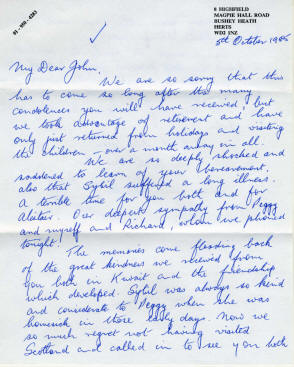 8 HIGHFIELD
MAGPIE HALL ROAD
BUSHEY HEATH
HERTS
WD2 1NZ
01-950-4283
5th October 1986
My Dear John,
We are so sorry that this
has to come so long after the many
condolences you will have received, but
we took advantage of retirement and have
only just returned from holidays and visiting
the children - over a month away in all.
We are so deeply shocked and
saddened to learn of your bereavement,
also that Sybil suffered a long illness.
A terrible time for you both and for
Our deepest sympathy from Peggy
and myself and Richard, whom we phoned
tonight.
The memories come flooding back
of the great kindness we received from
you both in Kuwait and the friendship
which developed. Sybil was always so kind
and considerate to Peggy when she was
homesick in those early days. Now we
so much regret not having visited
Scotland and called in to see you both